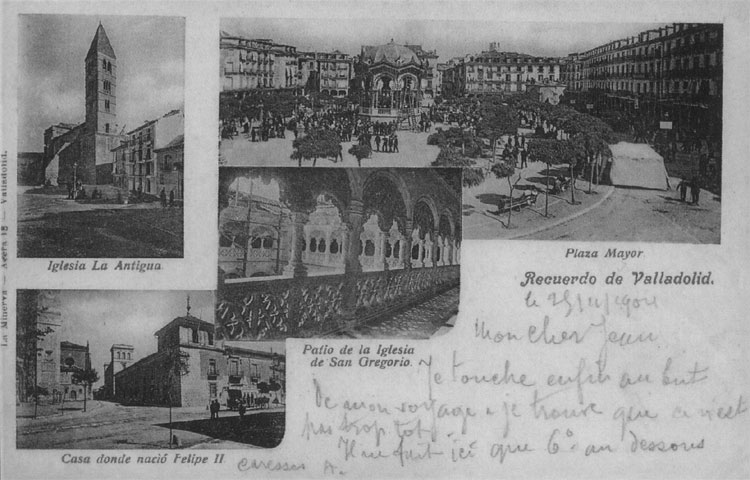 La Minerva — Acera 12 — Valladolid.
Iglesia La Antigua
Plaza Mayor
Recuerdo de Valladolid.
Patio de la Iglesia
de San Gregorio.
Casa donde nació Felipe II
le
Mon cher Jean
Je touche enfin au but
De mon voyage & je trouve que ce n'est
pas trop tôt.
Il ne fait ici que 6° au dessous
caresses A.